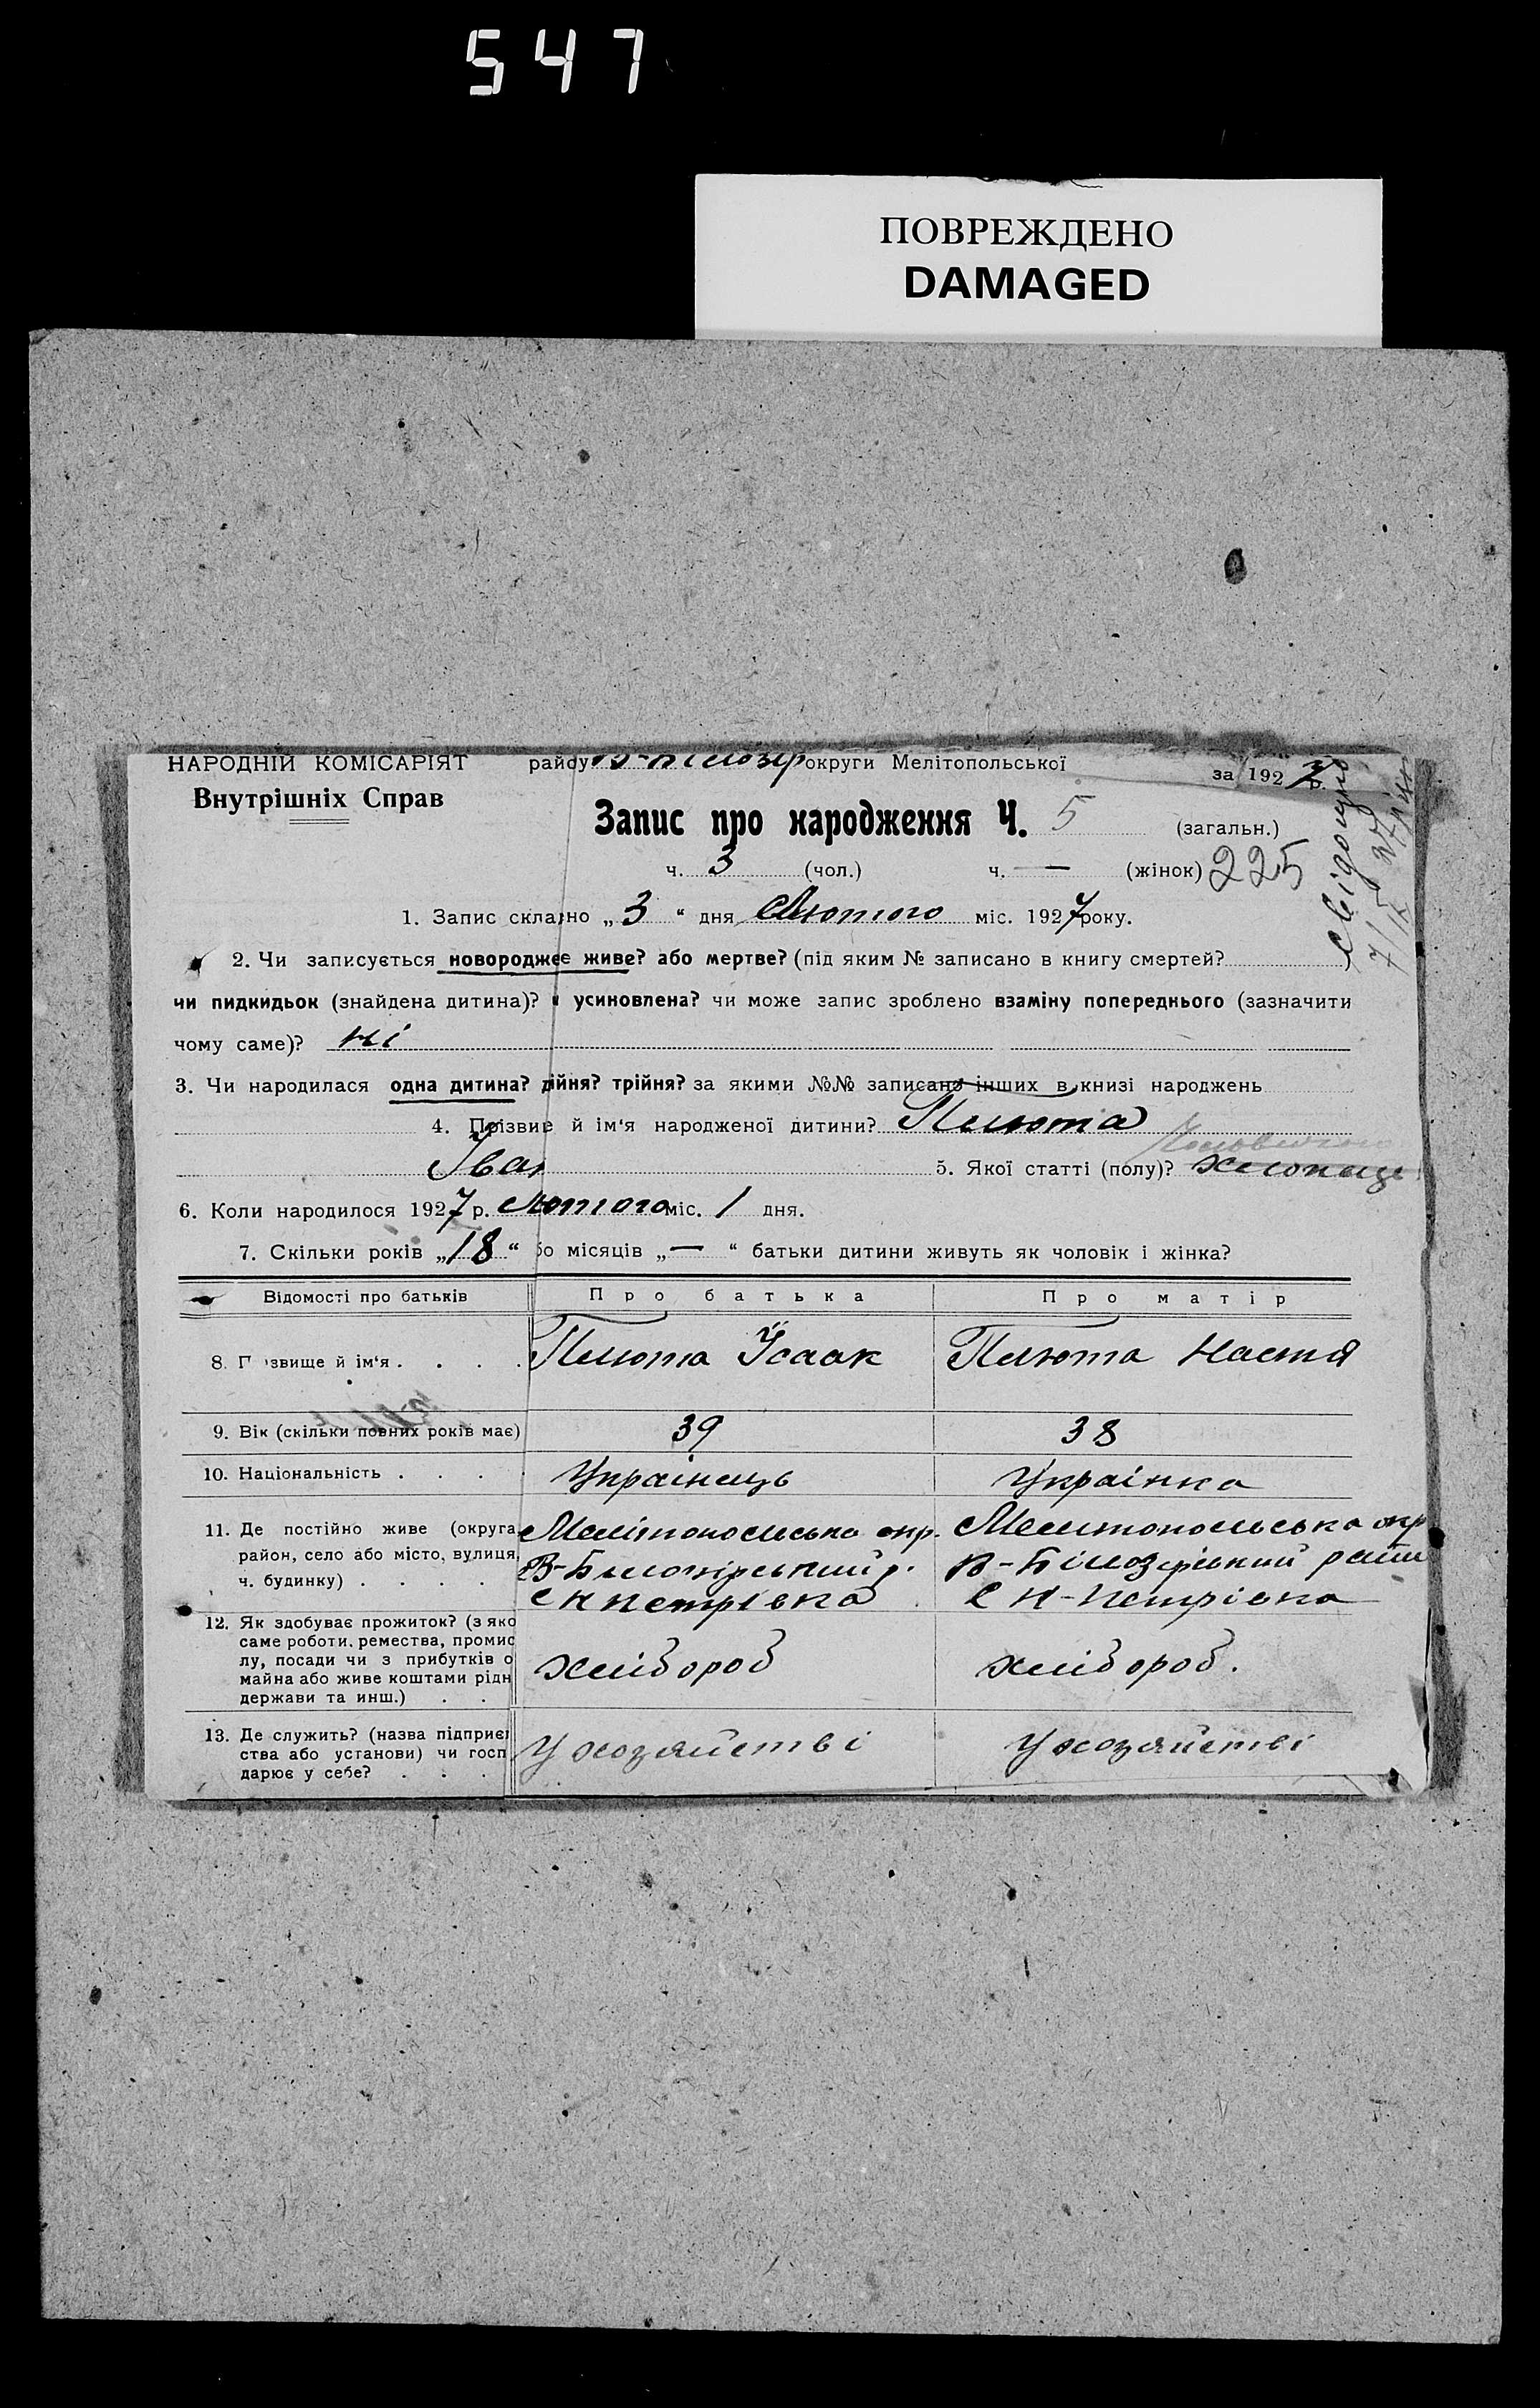 547
ПОВРЕЖДЕНО
DAMAGED
НАРОДНІЙ КОМІСАРІЯТ району В-Білозір округи Мелітопольської за 1927 р.
Внутрішніх Справ
Запис про народження Ч. 5 (загальн.)
ч. 3 (чол.) ч. — (жінок) 225
1. Запис складно „3“ дня Лютого міс. 1927 року.
2. Чи записується новороджее живе? або мертве? (під яким № записано в книгу смертей?
чи пидкидьок (знайдена дитина)? и усиновлена? чи може запис зроблено взаміну попереднього (зазначити
чому саме)? ні
3. Чи народилася одна дитина? дійня? трійня? за якими №№ записано інших в книзі народжень
4. Прізвие й ім'я народженої дитини? Плюта
Іван 5. Якої статті (полу)? хлопець
6. Коли народилося 1927 р. Лютого міс. 1 дня.
7. Скільки років „18“ бо місяців „—“ батьки дитини живуть як чоловік і жінка?
Відомості про батьків Про батька Про матір
8. П ізвище й ім'я . . . . Плюта Ісаак Плюта Настя
9. Вік (скільки повних років має) 39 38
10. Національність . . . . Українець Українка
11. Де постійно живе (округа Мелітопольська окр. Мелитопольська окр
район, село або місто, вулиця, В-Білозірський р. В-Білозірський райи
ч. будинку) . . . . с Н Петрівка с Н-Петрівка
12. Як здобуває прожиток? (з яко
саме роботи, ремества, промис
лу, посади чи з прибутків о хлібороб хлібороб.
майна або живе коштами рідн
держави та инш.) . .
13. Де служить? (назва підприє
ства або установи) чи госп У хозяйстві У хозяйстві
дарює у себе? . . .
Свідоцтво